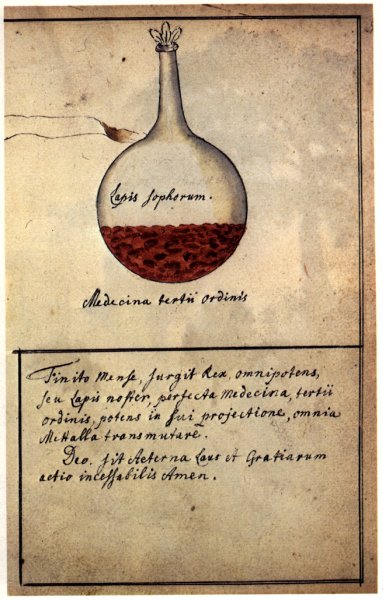 Lapis sophorum.
Medecina tertii ordinis
Finito Mense, surgit Rex omnipotens,
seu Lapis noster, perfecta Medecina, tertii
ordinis, potens in sui projectione, omnia
Mettalla transmutare.
Deo. sit Aeterna Laus et Gratiarum
actio incessabilis Amen.